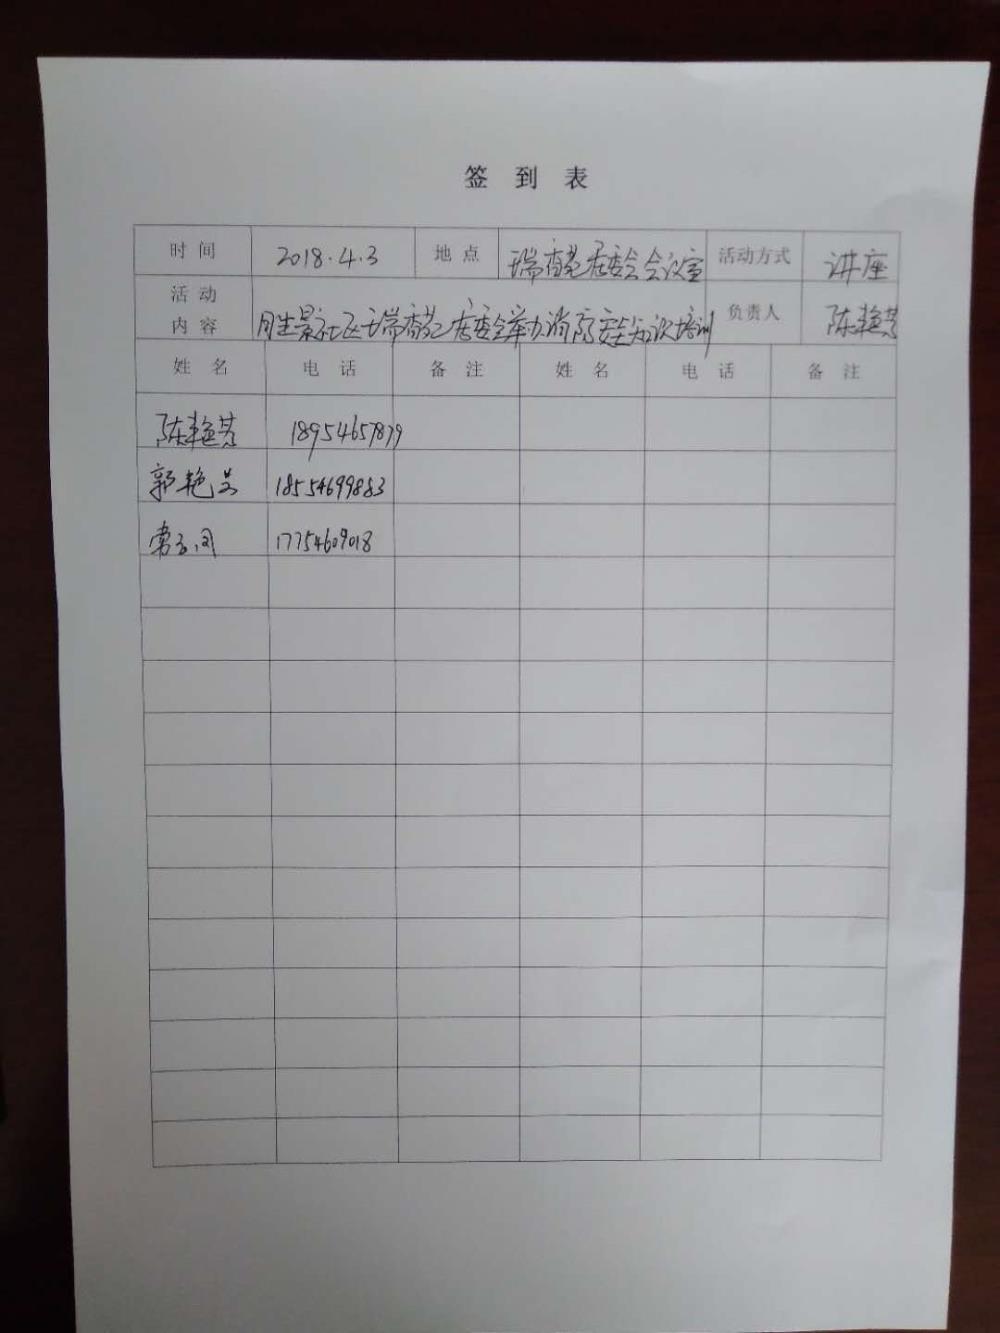 签 到 表
时 间 2018.4.3 地 点 瑞香苑居委会会议室 活动方式 讲座
活 动 内 容 月生景社区瑞香苑居委会举办消防安全知识培训 负责人 陈艳芸
姓 名 电 话 备 注 姓 名 电 话 备 注
陈艳芸 18954657879
郭艳 18554699883
常 17754609018